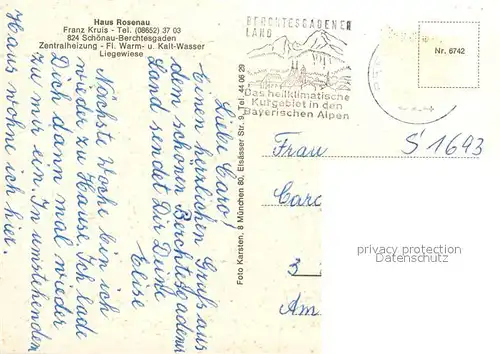 Haus Rosenau
Franz Kruis - Tel. (08652) 37 03
824 Schönau-Berchtesgaden
Zentralheizung - Fl. Warm- u. Kalt-Wasser
Liegewiese
Liebe Caro!
Einen herzlichen Gruß aus
dem schönen Berchtesgadener
Land sendet Dir Deine
Elise
Nächste Woche bin ich
wieder zu Hause. Ich lade
Dich dann mal wieder
zu mir ein. In umstehenden
Haus wohne ich hier.
Foto Karsten, 8 München 80, Elsässer Str. 9, Tel. 44 06 29
BERCHTESGADENER
LAND
Das heilklimatische
Kurgebiet in den
Bayerischen Alpen
Nr. 6742
S 1693
Frau
Caro
3
Am
privacy protection
Datenschutz